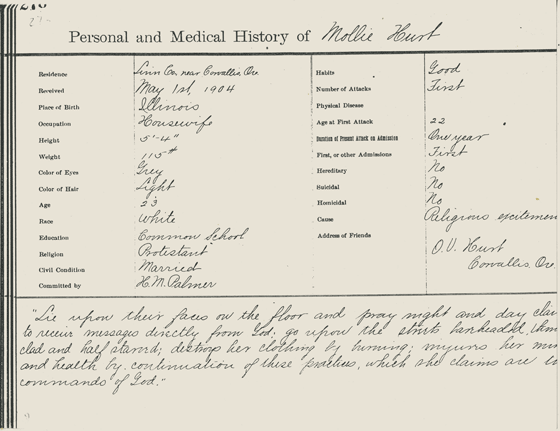 Personal and Medical History of Mollie Hurt
Residence Linn Co. near Corvallis Ore
Received May 1st, 1904
Place of Birth Illinois
Occupation Housewife
Height 5'-4"
Weight 115#
Color of Eyes Grey
Color of Hair Light
Age 23
Race White
Education Common School
Religion Protestant
Civil Condition Married
Committed by H.M. Palmer
Habits Good
Number of Attacks First
Physical Disease
Age at First Attack 22
Duration of Present Attack on Admission One year
First, or other Admissions First
Hereditary No
Suicidal No
Homicidal No
Cause Religious excitemen
Address of Friends O.V. Hurt
Corvallis, Ore
"Lie upon their faces on the floor and pray night and day clai
to receive messages directly from God; go upon the streets bareheaded,
clad and half starved; destroys her clothing by burning; injures her
and health by continuation of these practices, which she claims are
commands of God."